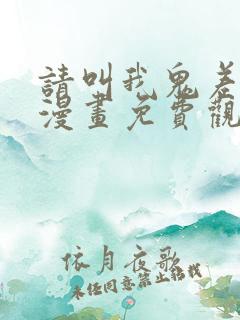 請叫我鬼差
漫畫免費觀
依月夜歌
未經同意禁止轉載